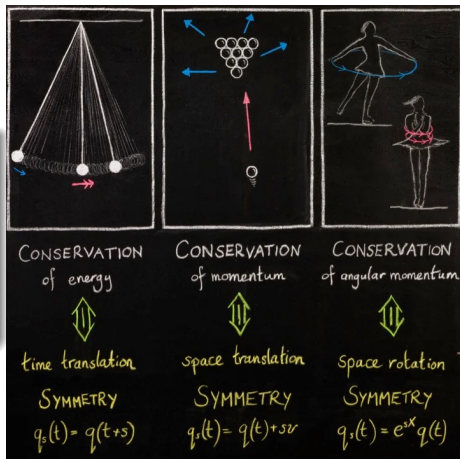 CONSERVATION
of energy
time translation
SYMMETRY
qₛ(t) = q(t+s)
CONSERVATION
of momentum
space translation
SYMMETRY
qₛ(t) = q(t) + sv
CONSERVATION
of angular momentum
space rotation
SYMMETRY
qₛ(t) = eˢˣ q(t)